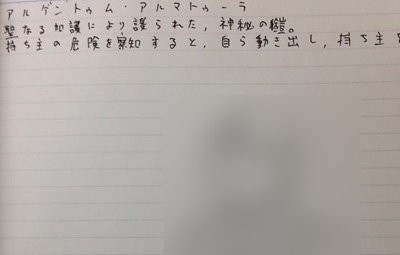 アルゲントゥム・アルマトゥーラ
聖なる加護により護られた，神秘の鎧。
持ち主の危険を察知すると，自ら動き出し，持ち主